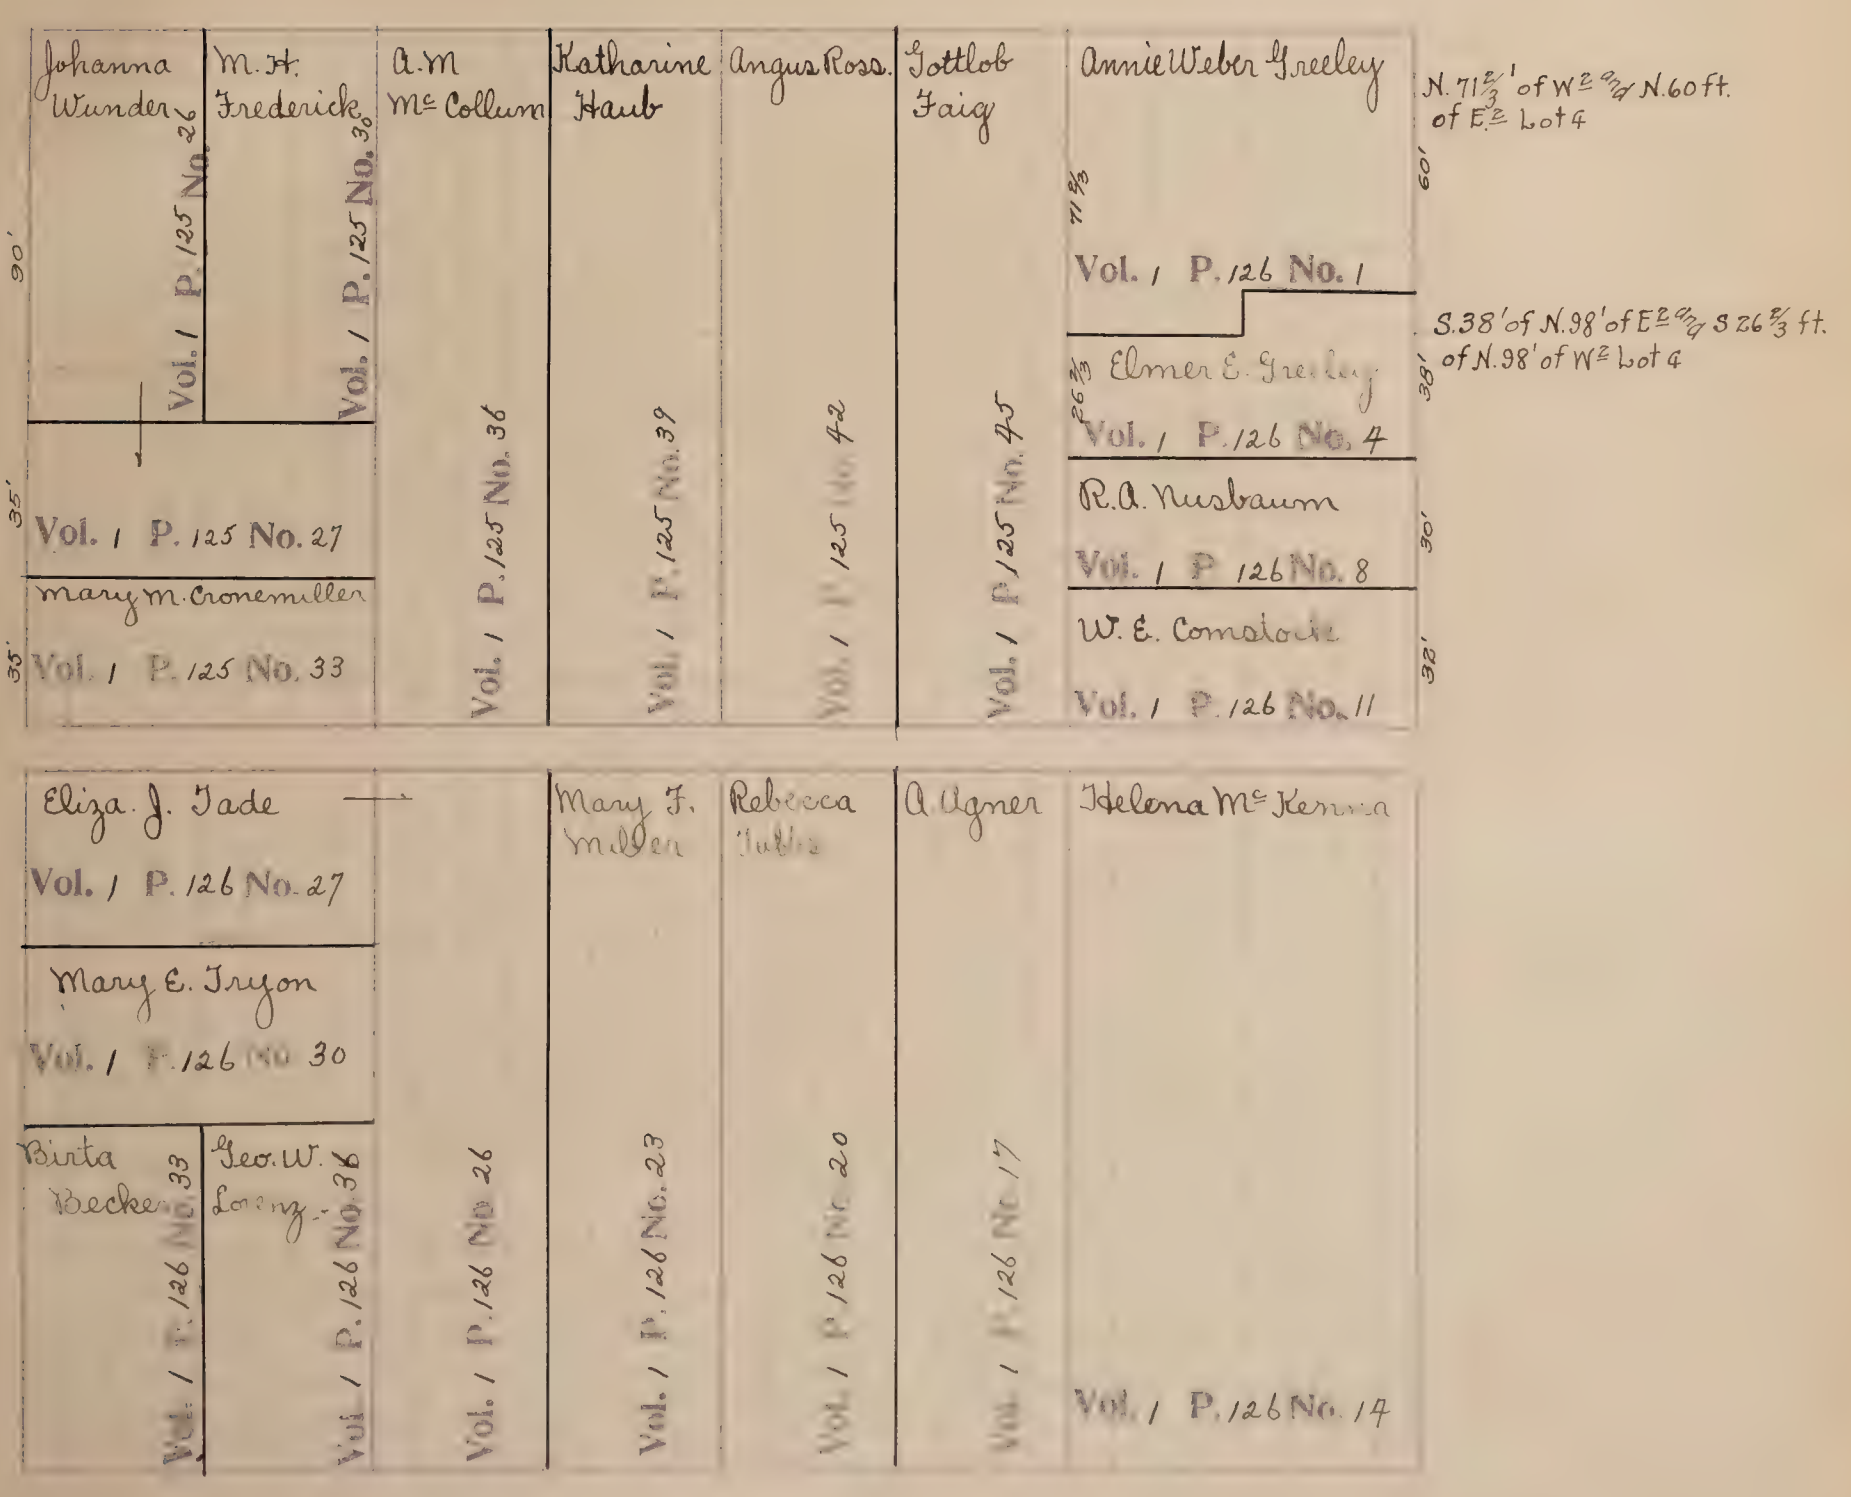 Johanna
Wunder
90'
Vol. 1 P. 125 No. 26
M. H.
Frederick
Vol. 1 P. 125 No. 30
A. M
Mc Collum
Vol. 1 P. 125 No. 36
Katharine
Haub
Vol. 1 P. 125 No. 39
Angus Ross.
Vol. 1 P. 125 No. 42
Gottlob
Faig
Vol. 1 P 125 No. 45
Annie Weber Greeley
71 2/3
60'
Vol. 1 P. 126 No. 1
N. 71 2/3' of W 2 and N. 60 ft.
of E. 2 Lot 4
Elmer E. Greeley
26 2/3
38'
Vol. 1 P. 126 No. 4
S. 38' of N. 98' of E 2 and S 26 2/3 ft.
of N. 98' of W 2 Lot 4
35'
Vol. 1 P. 125 No. 27
R. A. Nusbaum
30'
Vol. 1 P 126 No. 8
Mary M. Cronemiller
35'
Vol. 1 P. 125 No. 33
W. E. Comstock
32'
Vol. 1 P. 126 No. 11
Eliza. J. Tade
Vol. 1 P. 126 No. 27
Mary E. Tryon
Vol. 1 P. 126 No 30
Birta
Becke
Vol. 1 P. 126 No. 33
Geo. W.
Lorenz
Vol 1 P. 126 No. 36
Vol. 1 P. 126 No 26
Mary F.
Miller
Vol. 1 P. 126 No. 23
Rebecca
Vol. 1 P 126 No. 20
A. Agner
Vol. 1 P. 126 No. 17
Helena Mc Kenna
Vol. 1 P. 126 No. 14